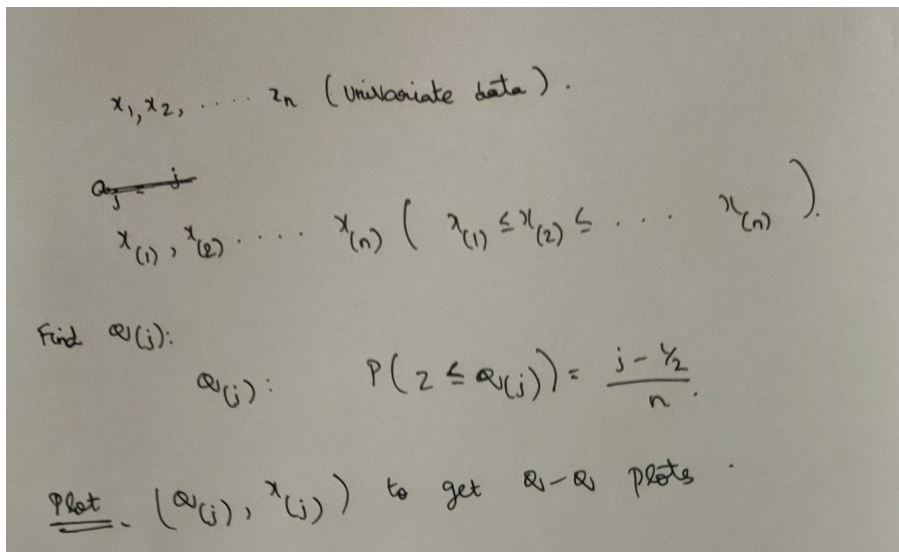 x₁, x₂, ..... xₙ (Univariate data).
Qⱼ = j
x₍₁₎, x₍₂₎ .... x₍ₙ₎ ( x₍₁₎ ≤ x₍₂₎ ≤ .... x₍ₙ₎ ).
Find Q(j):
Q(j): P(Z ≤ Q(j)) = (j - 1/2)/n.
Plot. (Q(j), x(j)) to get Q-Q plots.